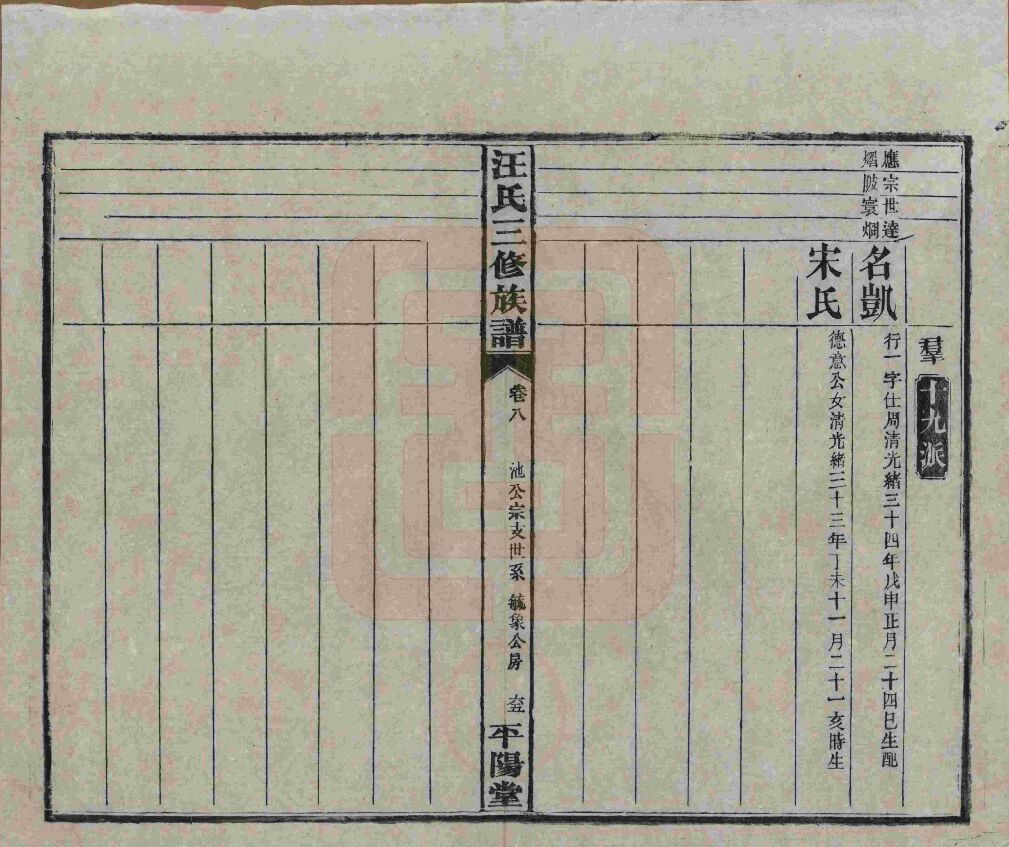 羣
十九派
應宗世達
熠陂寰烱
名凱
行一字仕周清光緒三十四年戊申正月二十四巳生配
宋氏
德意公女清光緒三十三年丁未十一月二十一亥時生
汪氏三修族譜
卷八
池公宗支世系
毓象公房
六五
平陽堂